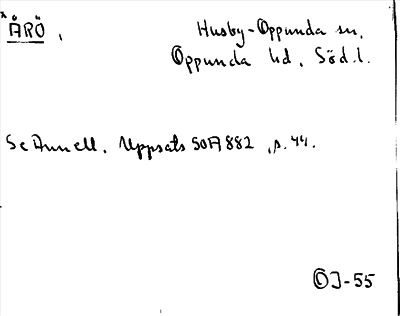 *ÅRÖ, Husby-Oppunda sn,
Oppunda hd, Söd.l.
Se Annell. Uppsats SOFI 882, s. 44.
ÖJ-55